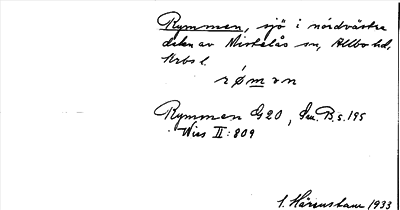 Rymmen, sjö i nordvästra
delen av Mistelås sn, Allbo hd,
Krbs l.
rómən
Rymmen G20, Sm. B. s. 195
Wies II: 809
1933